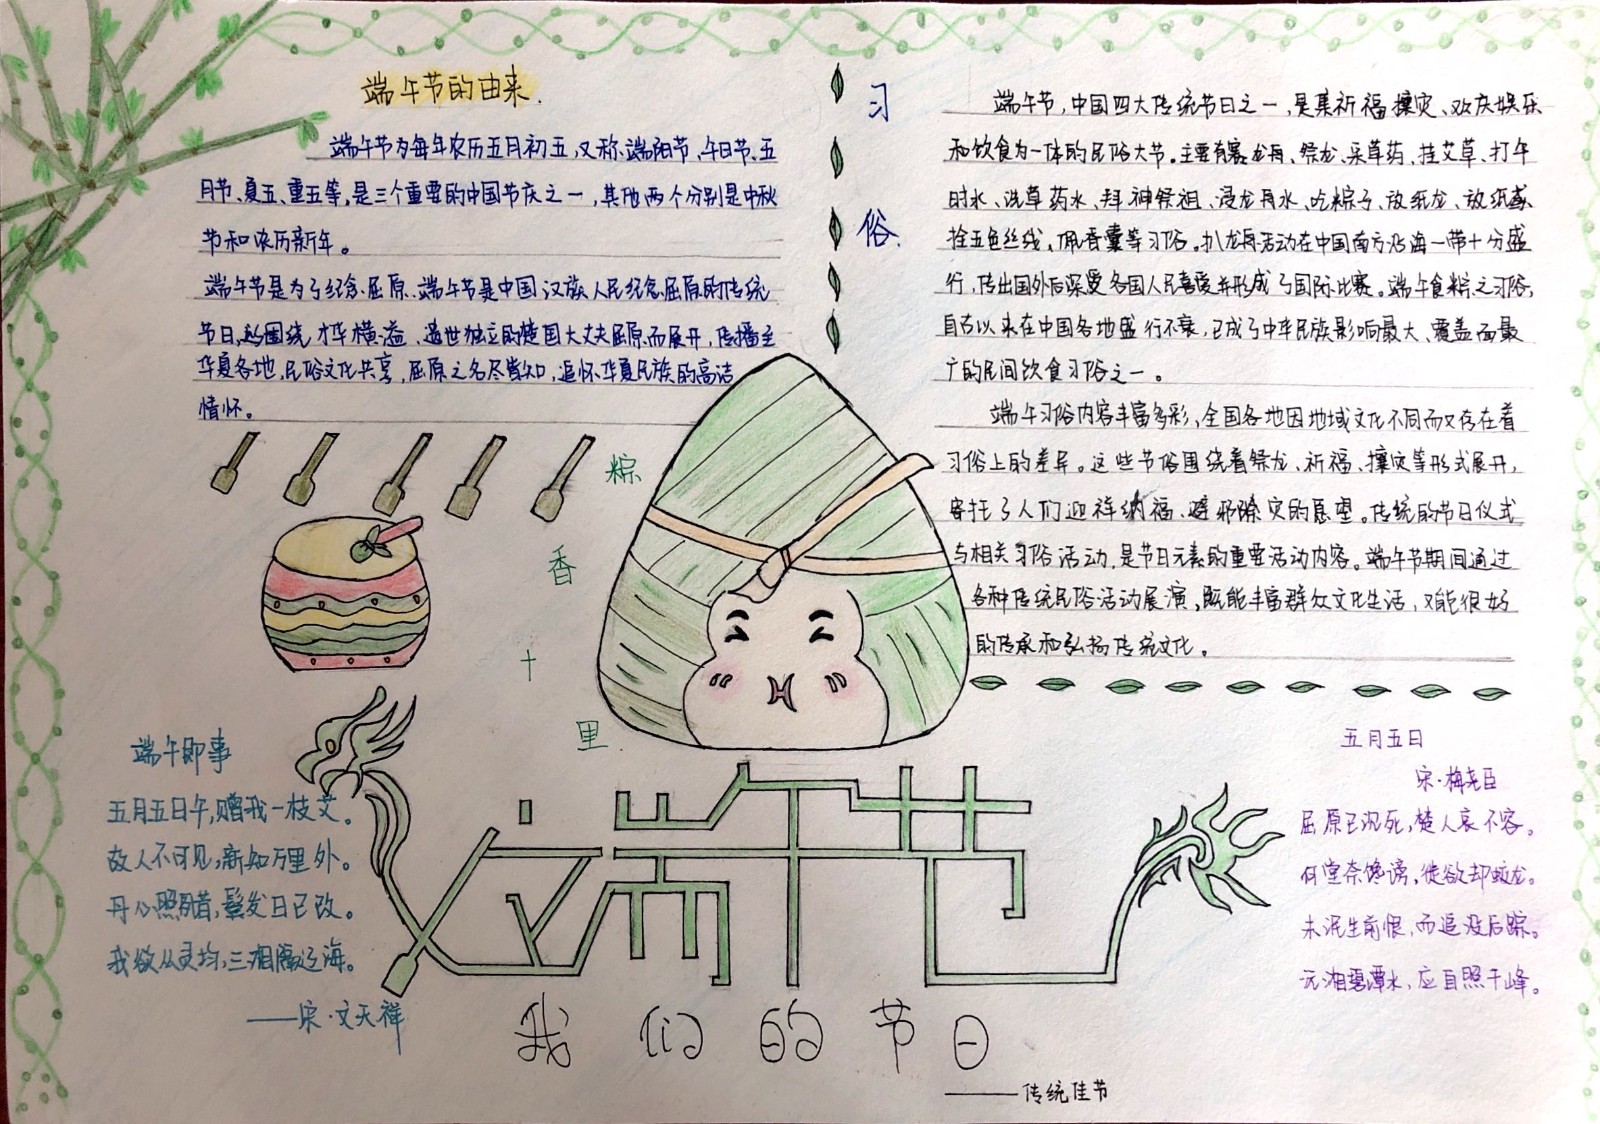 端午节的由来.
端午节为每年农历五月初五,又称、端阳节、午日节、五
月节、夏五、重五等,是三个重要的中国节庆之一,其他两个分别是中秋
节和农历新年。
端午节是为了纪念屈原、端午节是中国汉族人民纪念屈原的传统
节日,围绕才华横溢、遗世独立的楚国大夫屈原而展开,传播至
华夏各地,民俗文化共享,屈原之名尽皆知,追怀华夏民族的高洁
情怀。
习
俗.
端午节,中国四大传统节日之一,是集祈福攘灾、欢庆娱乐
和饮食为一体的民俗大节。主要有赛龙舟、祭龙、采草药、挂艾草、打午
时水、洗草药水、拜神祭祖、浸龙舟水、吃粽子、放纸龙、放纸鸢、
拴五色丝线、佩香囊等习俗。扒龙舟活动在中国南方沿海一带十分盛
行,传出国外后深受各国人民喜爱并形成了国际比赛。端午食粽之习俗,
自古以来在中国各地盛行不衰,已成了中华民族影响最大、覆盖面最
广的民间饮食习俗之一。
端午习俗内容丰富多彩,全国各地因地域文化不同而又存在着
习俗上的差异。这些节俗围绕着祭龙、祈福、攘灾等形式展开,
寄托了人们迎祥纳福、避邪除灾的愿望。传统的节日仪式
与相关习俗活动,是节日元素的重要活动内容。端午节期间通过
各种传统民俗活动展演,既能丰富群众文化生活,又能很好
的传承和弘扬传统文化。
粽
香
十
里.
端午即事
五月五日午,赠我一枝艾。
故人不可见,新知万里外。
丹心照夙昔,鬓发日已改。
我欲从灵均,三湘隔辽海。
——宋·文天祥
端午节
五月五日
宋·梅尧臣
屈原已沉死,楚人哀不容。
何尝奈谗谤,徒欲却蛟龙。
未泯生前恨,而追没后踪。
沅湘碧潭水,应自照千峰。
我们的节日
——传统佳节